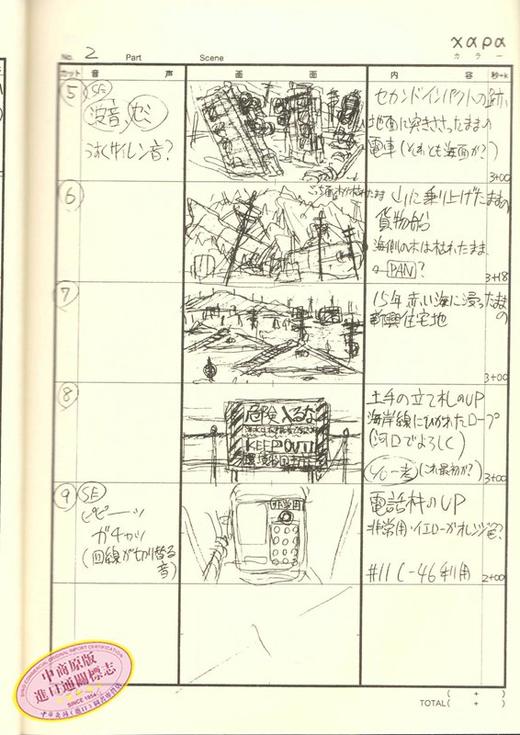 χαρα
カラー
No. 2 Part Scene
カット 音 声 画 面 内 容 秒+k
5
SE
波音、セミ
うすくサイレン音?
セカンドインパクトの跡、
地面に突きささったままの
電車(それとも海面か?)
3+00
6
山に乗り上げたままの
貨物船
海側の木は枯れたまま、
PAN?
3+18
7
15年 赤い海に浸ったままの
新興住宅地
3+00
8
危険 入るな
KEEP OUT!!
土手の立て札のUP
海岸線にひかれたロープ
(河口でよろしく)
(これ最初か?)
3+00
9
SE
ピピーーッ
ガチャッ
(回線が切り替る
音)
非常用
電話機のUP
非常用・イエローかオレンジ色?
#11 C-46 利用
2+00
TOTAL( + )
( + )
中商原版
進口通關標誌
SINCE 1954